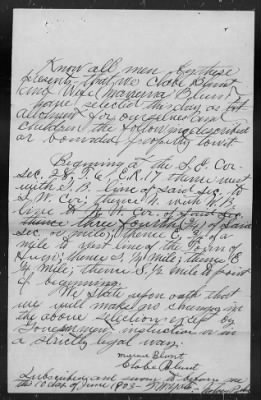 Know all men by these
presents that we Clabe Blunt
and wife Maxema Blunt
have selected this day as
allotment for ourselves and
children the following described
or bounded property to wit
Begining at the S.E. Cor
sec. 28, T. 6, E.R. 17 thence west
with S. B. line of said sec. to
S.W. Cor; thence N. with W.B.
line to N.W. Cor. of said sec.
thence three fourths (3/4) of said
sec. or mile; thence E, 3/4 of a
mile to west line of the Town of
Hugo; thence S, 1/4 mile; thence E
1/4 mile; thence S, 1/2 mile to point
of beginning.
We state upon oath that
we will make no change in
the above selection except by
Government instruction or in
a strictly legal way.
Blunt
Clabe Blunt
Subscribed and sworn to before me
this 10 day of June 1903